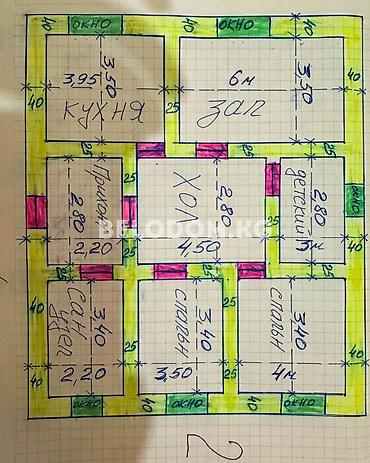 окно окно
40 40
3,95 3,50 6м 3,50
40 25 40
кухня зал
25 25 25
Прихож 25 ХОЛ 25 детский окно
2,80 2,80 2,80
2,20 4,50 3м
BELODOM.KG
25 25 25
Сан узел спальн спальн
3,40 3,40 3,40
40 25 25 40
2,20 3,50 4м
окно 40 окно 40 окно 40
2